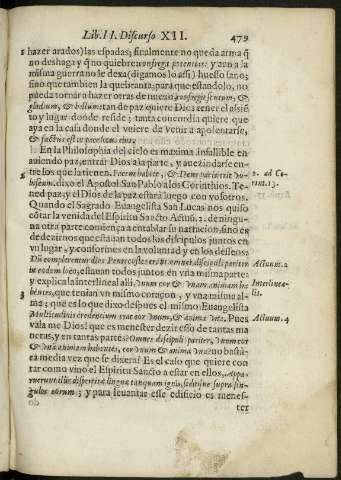 Lib. II. Discurso XII. 479
hazer arados) las espadas; finalmente no queda arma q̃
no deshaga y q̃ no quiebre confregit potentias: y aun a la
misma guerra no le dexa (digamos lo assi) huesso sano;
sino que tambien la quebranta, para que estandolo, no
pueda tornar a hazer otras de nuevo: confregit scutum, &
gladium, & bellum: tan de paz quiere Dios tener el assie
to y lugar donde reside; tanta concordia quiere que
aya en la casa donde el viene a
& factus est in pace locus eius.
En la Philosophia del cielo es maxima infallible en
auiendo paz, entrar Dios a la parte, y auezindarse en-
tre los que la tienen. Pacem habete, & Deus pacis erit vo-
biscum. dixo el Apostol San Pablo a los Corinthios. Te- 2. ad Co
ned paz, y el Dios de la paz estarà luego con vosotros. rint. 13
Quando el Sagrado Euangelista San Lucas nos quiso
cõtar la venida del Espiritu Sancto Actus. 2. de ningu-
na otra parte comiença a entablar su narracion, sino es
de dezirnos que estauan todos los discipulos juntos en
vn lugar, y conformes en la voluntad y en los desseos:
Dũ complerentur dies Pentecostes erãt omnes discipuli pariter Actuum. 2
in eodem loco, estauan todos juntos en vna misma parte:
y explica la interlineal alli, vnum cor & vnam animam ha Interlinea-
bentes, que tenian vn mismo coraçon, y vna misma al- lis.
ma; que es lo que dixo despues el mismo Euangelista
Multitudinis credentium erat cor vnum, & anima vna. Pues Actuum. 4
vala me Dios! que es menester dezir esso de tantas ma
neras, y en tantas partes? Omnes discipuli pariter, vnum cor
& vnã animam habentes, cor vnum & anima vna? no basta-
ra media vez que se dixera? Es el caso que quiere con
tar como vino el Espiritu Sancto a estar en ellos, Appa-
ruerunt illis dispertitæ linguæ tanquam ignis, seditque supra sin-
gulos eorum; y para leuantar esse edificio es menes-
ter